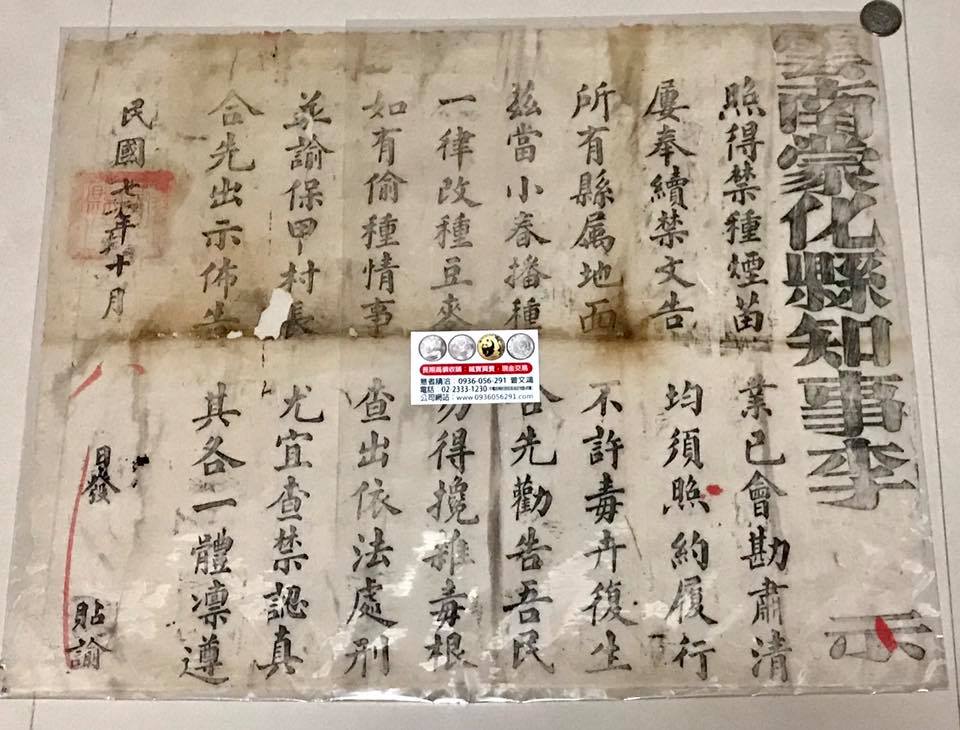 雲南蒙化縣知事李 示
照得禁種煙苗 業已會勘肅清
屢奉續禁文告 均須照約履行
所有縣属地面 不許毒卉復生
茲當小春播種 合先勸告吾民
一律改種豆麥 勿得攙雜毒根
如有偷種情事 查出依法處刑
並諭保甲村長 尤宜查禁認真
合先出示佈告 其各一體凛遵
民國七年十月 日發 貼諭
長期高價收購：誠實買賣・現金交易
意者請洽：0936-056-291 曾文鴻
電話：02-2333-1230
公司網站：www.0936056291.com